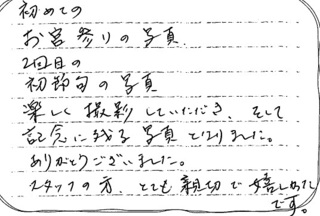 初めての
お宮参りの写真、
2回目の
初節句の写真
楽しく撮影していただき、そして
記念に残る写真となりました。
ありがとうございました。
スタッフの方、とても親切で嬉しかった
です。